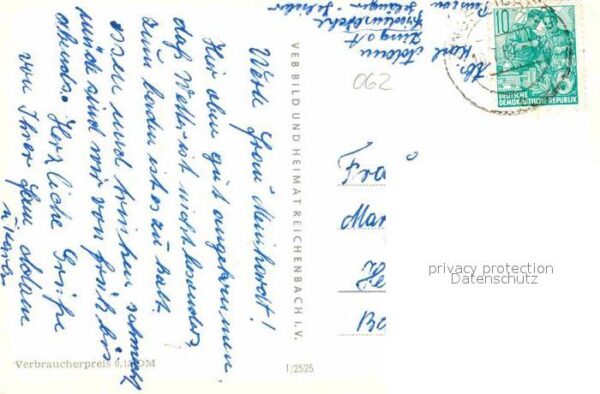 Werte Frau Meinhardt!
Hier oben gut angekommen,
daß Wetter ist nicht besonders,
zum baden ist es zu kalt.
Essen und trinken schmeckt
müde sind wir von früh bis
abends. Herzliche Grüße
von Ihrer Fam. Adam
VEB BILD UND HEIMAT REICHENBACH I. V.
Verbraucherpreis 0,15 DM
1/2525
Abs. Karl Adam
Zingst
Pension
062
10
DEUTSCHE
DEMOKRATISCHE REPUBLIK
Fra
Mar
He
privacy protection
Datenschutz